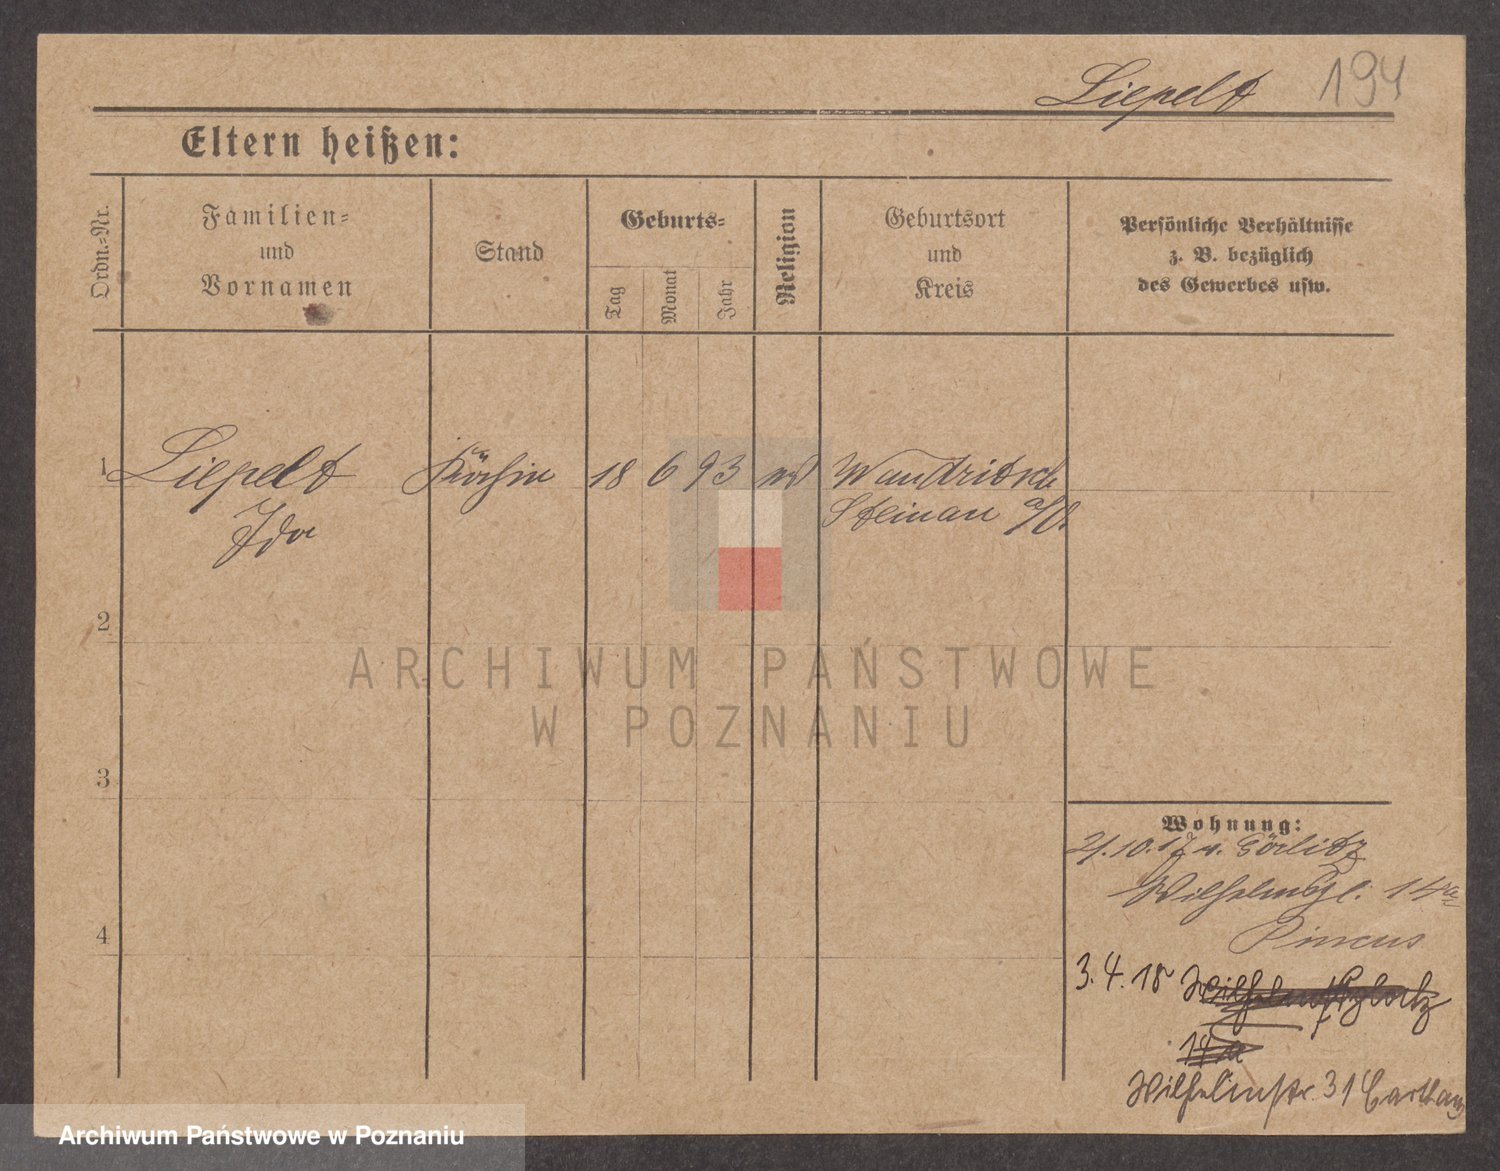 Liepelt 194
Eltern heißen:
Ordn.-Nr.
Familien-
und
Vornamen
Stand
Geburts-
Tag
Monat
Jahr
Religion
Geburtsort
und
Kreis
Persönliche Verhältnisse
z. B. bezüglich
des Gewerbes usw.
1 Liepelt Köchin 18 6 93 Wandritsch
Ida Steinau a/O.
2
ARCHIWUM PAŃSTWOWE
W POZNANIU
3
Wohnung:
21.10.17 v. Görlitz
Wilhelmspl. 14a
Pincus
4
3.4.18 Wilhelmsplatz
14a
Wilhelmstr. 31
Archiwum Państwowe w Poznaniu